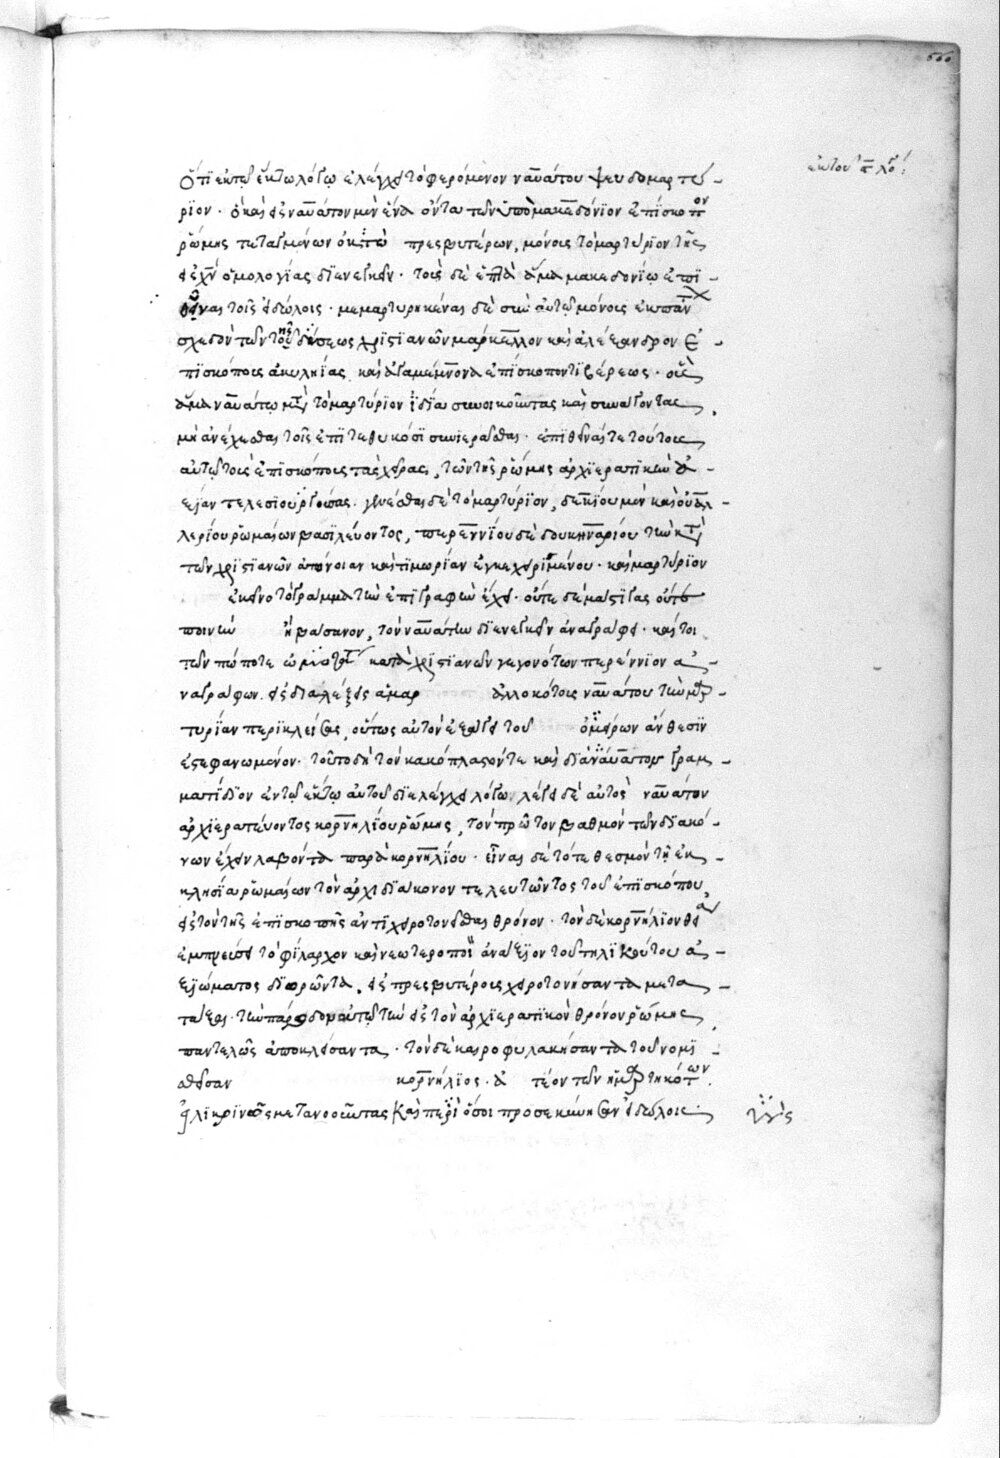 560
ἐκ τοῦ
Ὅτι ἐν τῷ ἕκτῳ λόγῳ ἐλέγχει τὸ φερόμενον ναυάτου ψευδομαρτύ-
ριον. ὃ καὶ εἰ ναυάτον μὲν ἕνα ὄντα τῶν ὑπὸ μακεδόνιον ἐπίσκοπον
ῥώμης τεταγμένων ὀκτὼ πρεσβυτέρων, μόνοις τὸ μαρτύριον τῆς
ὁμολογίας διενεγκεῖν. τοὺς δὲ ἑπτὰ ἅμα μακεδονίῳ ἐπι
θῦσαι τοῖς εἰδώλοις. μεμαρτυρηκέναι δὲ σὺν αὐτῷ μόνοις ἐκ πάντων
σχεδὸν τῶν τῆς δύσεως χριστιανῶν μάρκελλον καὶ ἀλέξανδρον ἐ-
πισκόποις ἀκυληίας, καὶ ἀγαμέμνονα ἐπίσκοπον τιβέρεως. οὓς
ἅμα ναυάτῳ μετὰ τὸ μαρτύριον ἰδίᾳ συνοικοῦντας καὶ συνάγοντας
μὴ ἀνέχεσθαι τοῖς ἐπιτεθυκόσι συνιερᾶσθαι. ἐπιθεῖναί τε τούτοις
αὐτῷ τοὺς ἐπισκόποις τὰς χεῖρας, τῶν τῆς ῥώμης ἀρχιερατικὴν ἀ-
ξίαν τελεσιουργούσας. γενέσθαι δὲ τὸ μαρτύριον, δεκίου μὲν καὶ οὐαλ-
λερίου ῥωμαίων βασιλεύοντος, περεννίου δὲ δουκηναρίου τὴν κατὰ
τῶν χριστιανῶν ἀπόνοιαν καὶ τιμωρίαν ἐγκεχειρισμένου. καὶ μαρτύριον
ἐκεῖνο τὸ γράμμα τὴν ἐπιγραφὴν ἔχει. οὔτε δὲ μάστιγας οὔτε
ποινὴν ἢ βάσανον, τὸν ναυάτον διενεγκεῖν ἀναγράφει. καίτοι
τῶν πώποτε ὠμότατον κατὰ χριστιανῶν γεγονότων περέννιον ἀ-
ναγράφων. εἰς διαλέξεις ἀλλοκότοις ναυάτου τὴν μαρ-
τυρίαν περικλείσας, οὕτως αὐτὸν ἐξάγει τοῦ ἄνθεσιν
ἐστεφανωμένον. τοῦτο δὴ τὸν κακόπλαστόν τε καὶ γραμ-
ματίδιον ἐν τῷ ἕκτῳ αὐτοῦ διελέγχει λόγῳ. λέγει δὲ αὐτὸς ναυάτον
ἀρχιερατεύοντος κορνηλίου ῥώμης, τὸν πρῶτον βαθμὸν τῶν διακό-
νων ἔχειν λαβόντα παρὰ κορνηλίου. εἶναι δὲ τότε θεσμὸν τῇ ἐκ-
κλησίᾳ ῥωμαίων τὸν ἀρχιδιάκονον τελευτῶντος τοῦ ἐπισκόπου,
εἰς τὸν τῆς ἐπισκοπῆς ἀντιχειροτονεῖσθαι θρόνον. τὸν δὲ κορνήλιον
τὸ φίλαρχον καὶ νεωτεροποιὸν ἀνάξιον τοῦ τηλικούτου ἀ-
ξιώματος διορῶντα, εἰς πρεσβυτέροις χειροτονήσαντα μετα
τάξαι. τὴν πάροδον αὐτῷ τὴν εἰς τὸν ἀρχιερατικὸν θρόνον ῥώμης
παντελῶς ἀποκλείσαντα. τὸν δὲ καιροφυλακήσαντα τοῦ νομι
σθεῖσαν κορνήλιος. τῶν ἡμαρτηκότων
εἰλικρινῶς μετανοοῦντας καὶ περὶ ὅσοι προσεκύνησαν εἰδώλοις